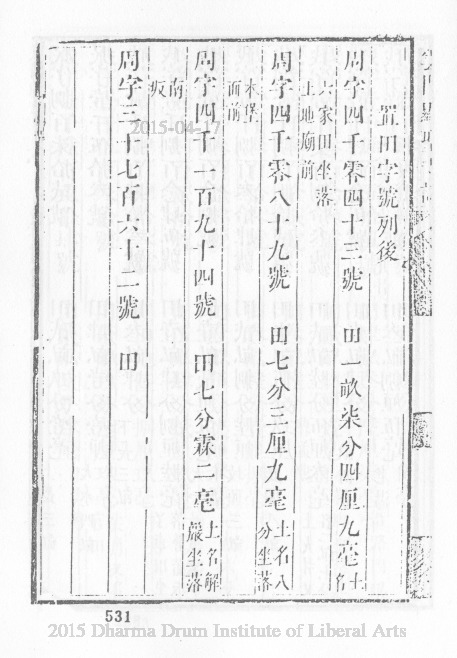 置田字號列後
周字四千零四十三號 田一畝柒分四厘九亳 土名
六家田坐落
土地廟前
周字四千零八十九號 田七分三厘九亳 土名八
分坐落
本堡
面前
周字四千一百九十四號 田七分霖二亳 土名解
嚴坐落
南
坂
周字三千七百六十二號 田
2015-04-17
531
2015 Dharma Drum Institute of Liberal Arts